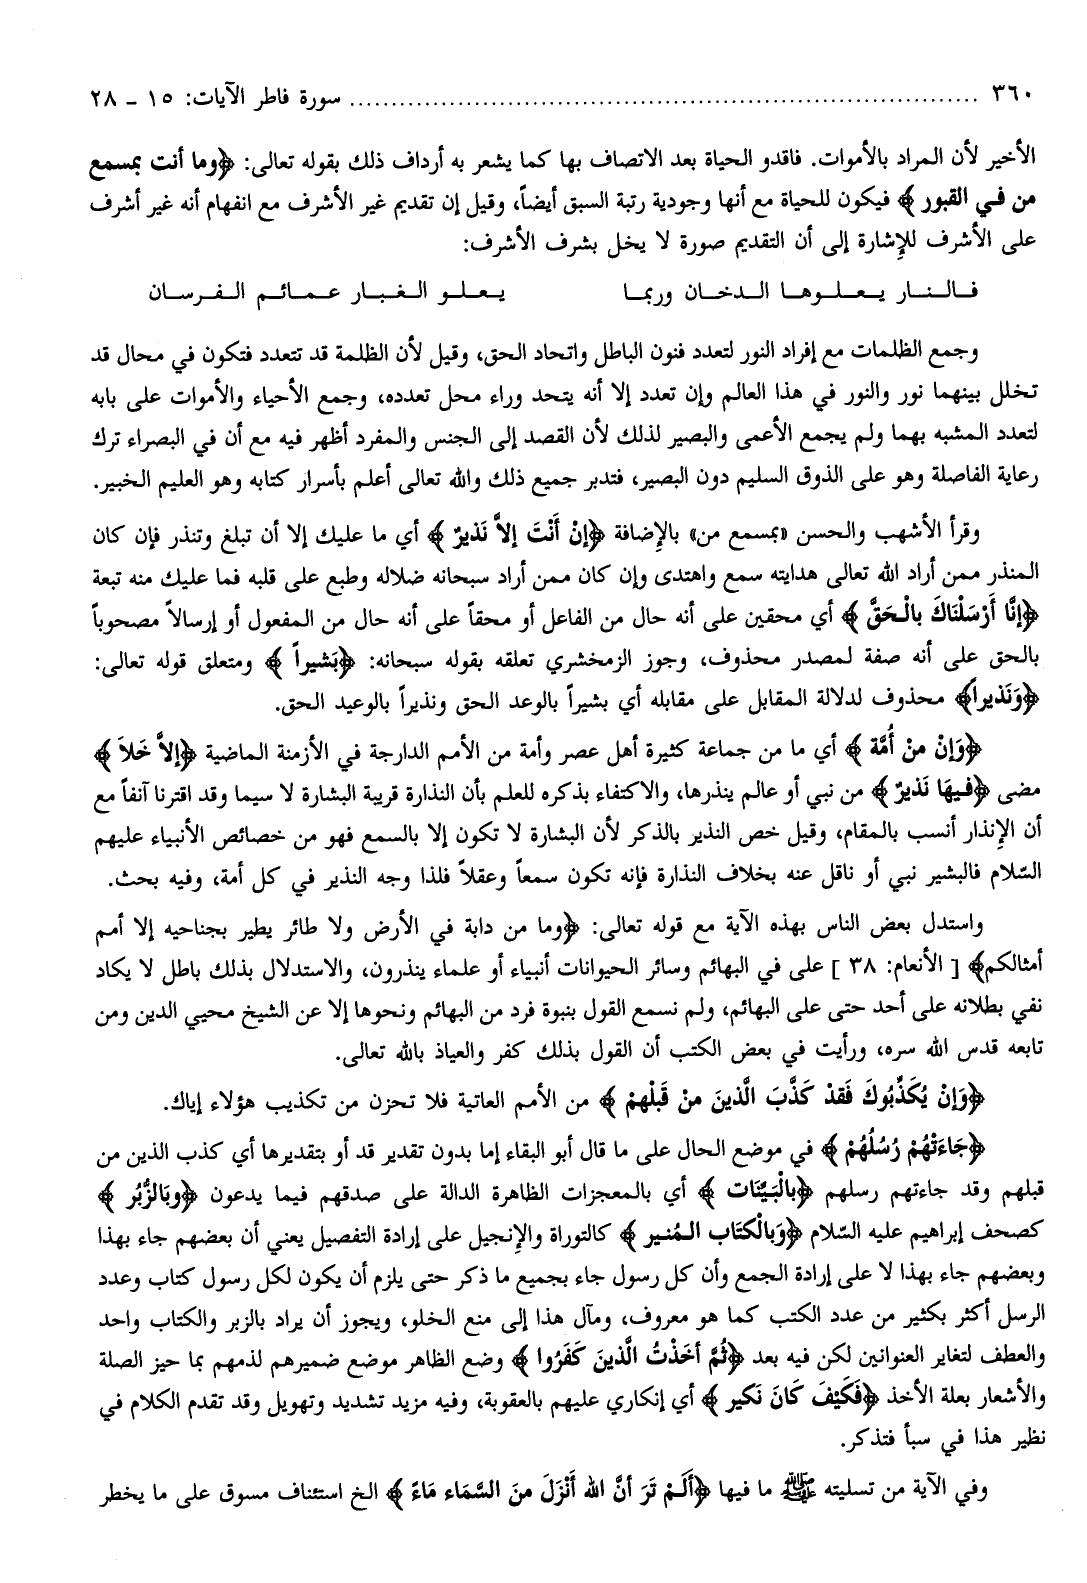 ٣٦٠ ........................................ سورة فاطر الآيات: ١٥ - ٢٨
الأخير لأن المراد بالأموات. فاقدو الحياة بعد الاتصاف بها كما يشعر به أرداف ذلك بقوله تعالى: ﴿وما أنت بمسمع
من في القبور﴾ فيكون للحياة مع أنها وجودية رتبة السبق أيضاً، وقيل إن تقديم غير الأشرف مع انفهام أنه غير أشرف
على الأشرف للإشارة إلى أن التقديم صورة لا يخل بشرف الأشرف:
فالنار يعلوها الدخان وربما يعلو الغبار عمائم الفرسان
وجمع الظلمات مع إفراد النور لتعدد فنون الباطل واتحاد الحق، وقيل لأن الظلمة قد تتعدد فتكون في محال قد
تخلل بينهما نور والنور في هذا العالم وإن تعدد إلا أنه يتحد وراء محل تعدده، وجمع الأحياء والأموات على بابه
لتعدد المشبه بهما ولم يجمع الأعمى والبصير لذلك لأن القصد إلى الجنس والمفرد أظهر فيه مع أن في البصراء ترك
رعاية الفاصلة وهو على الذوق السليم دون البصير، فتدبر جميع ذلك والله تعالى أعلم بأسرار كتابه وهو العليم الخبير.
وقرأ الأشهب والحسن «بمسمع من» بالإضافة ﴿إنْ أَنْتَ إلاَّ نَذيرٌ﴾ أي ما عليك إلا أن تبلغ وتنذر فإن كان
المنذر ممن أراد الله تعالى هدايته سمع واهتدى وإن كان ممن أراد سبحانه ضلاله وطبع على قلبه فما عليك منه تبعة
﴿إنَّا أَرْسَلْنَاكَ بالْحَقَّ﴾ أي محقين على أنه حال من الفاعل أو محقاً على أنه حال من المفعول أو إرسالاً مصحوباً
بالحق على أنه صفة لمصدر محذوف، وجوز الزمخشري تعلقه بقوله سبحانه: ﴿بَشيراً﴾ ومتعلق قوله تعالى:
﴿وَنَذيراً﴾ محذوف لدلالة المقابل على مقابله أي بشيراً بالوعد الحق ونذيراً بالوعيد الحق.
﴿وَإنْ منْ أُمَّة﴾ أي ما من جماعة كثيرة أهل عصر وأمة من الأمم الدارجة في الأزمنة الماضية ﴿إلاَّ خَلاَ﴾
مضى ﴿فيهَا نَذيرٌ﴾ من نبي أو عالم ينذرها، والاكتفاء بذكره للعلم بأن النذارة قريبة البشارة لا سيما وقد اقترنا آنفاً مع
أن الإنذار أنسب بالمقام، وقيل خص النذير بالذكر لأن البشارة لا تكون إلا بالسمع فهو من خصائص الأنبياء عليهم
السّلام فالبشير نبي أو ناقل عنه بخلاف النذارة فإنه تكون سمعاً وعقلاً فلذا وجه النذير في كل أمة، وفيه بحث.
واستدل بعض الناس بهذه الآية مع قوله تعالى: ﴿وما من دابة في الأرض ولا طائر يطير بجناحيه إلا أمم
أمثالكم﴾ [ الأنعام: ٣٨ ] على في البهائم وسائر الحيوانات أنبياء أو علماء ينذرون، والاستدلال بذلك باطل لا يكاد
نفي بطلانه على أحد حتى على البهائم، ولم نسمع القول بنبوة فرد من البهائم ونحوها إلا عن الشيخ محيي الدين ومن
تابعه قدس الله سره، ورأيت في بعض الكتب أن القول بذلك كفر والعياذ بالله تعالى.
﴿وَإنْ يُكَذِّبُوكَ فَقَدْ كَذَّبَ الَّذينَ منْ قَبْلهمْ﴾ من الأمم العاتية فلا تحزن من تكذيب هؤلاء إياك.
﴿جَاءَتْهُمْ رُسُلُهُمْ﴾ في موضع الحال على ما قال أبو البقاء إما بدون تقدير قد أو بتقديرها أي كذب الذين من
قبلهم وقد جاءتهم رسلهم ﴿بالْبَيِّنَات﴾ أي بالمعجزات الظاهرة الدالة على صدقهم فيما يدعون ﴿وبَالزُّبُر﴾
كصحف إبراهيم عليه السّلام ﴿وَبالْكتَاب المُنير﴾ كالتوراة والإنجيل على إرادة التفصيل يعني أن بعضهم جاء بهذا
وبعضهم جاء بهذا لا على إرادة الجمع وأن كل رسول جاء بجميع ما ذكر حتى يلزم أن يكون لكل رسول كتاب وعدد
الرسل أكثر بكثير من عدد الكتب كما هو معروف، ومآل هذا إلى منع الخلو، ويجوز أن يراد بالزبر والكتاب واحد
والعطف لتغاير العنوانين لكن فيه بعد ﴿ثُمَّ أخَذْتُ الَّذينَ كَفَرُوا﴾ وضع الظاهر موضع ضميرهم لذمهم بما حيز الصلة
والأشعار بعلة الأخذ ﴿فَكَيْفَ كَانَ نَكير﴾ أي إنكاري عليهم بالعقوبة، وفيه مزيد تشديد وتهويل وقد تقدم الكلام في
نظير هذا في سبأ فتذكر.
وفي الآية من تسليته ﷺ ما فيها ﴿أَلَمْ تَرَ أنَّ الله أَنْزَلَ منَ السَّمَاء مَاءً﴾ الخ استئناف مسوق على ما يخطر